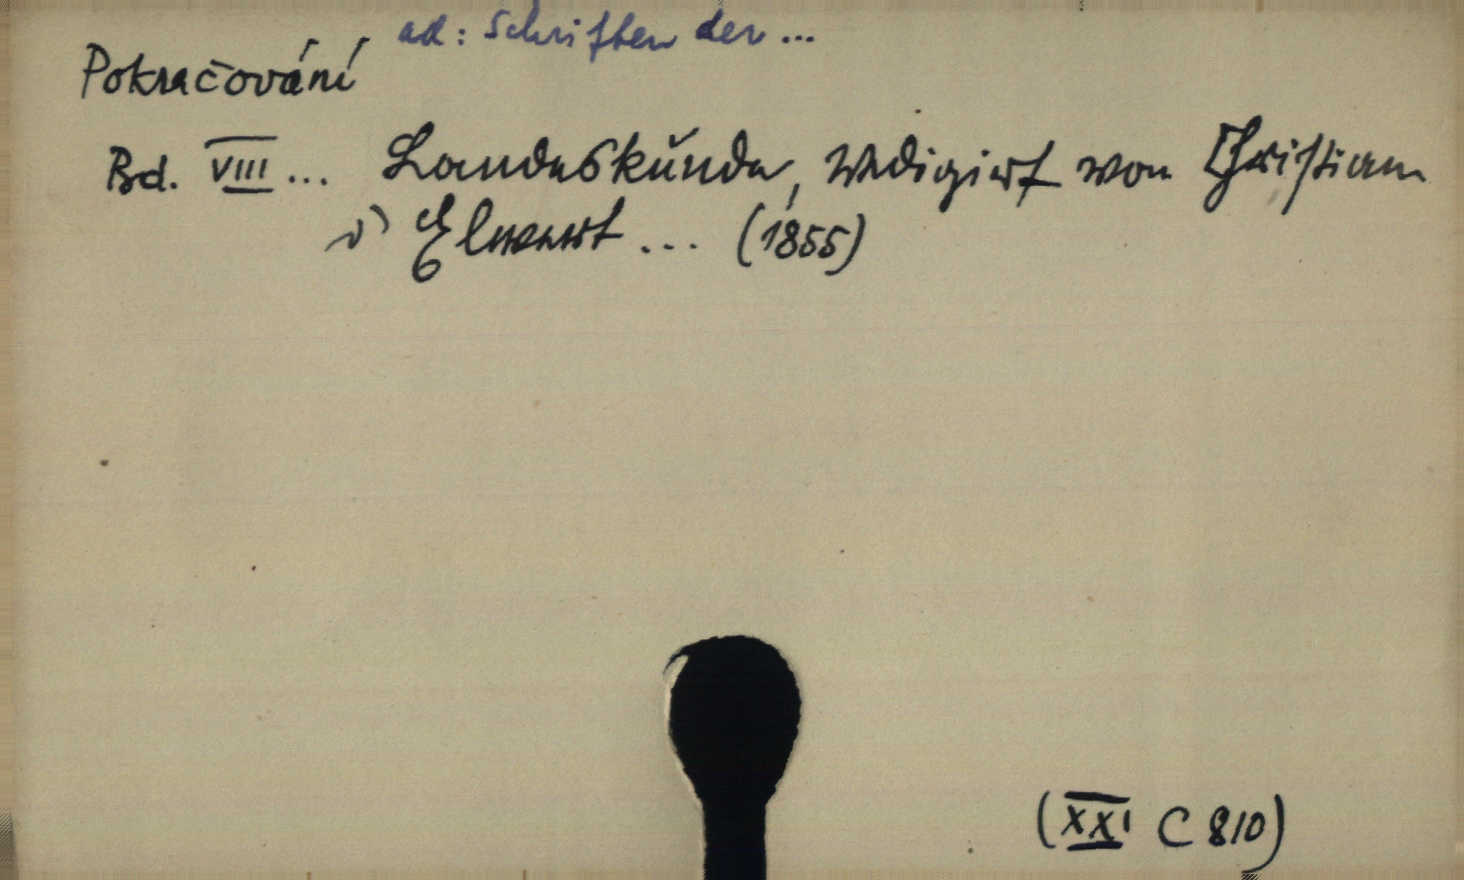 ad: Schriften der ...
Pokračování
Bd. VIII ... Landeskunde, redigiert von Christian
d' Elvert ... (1855)
(XXI C 810)